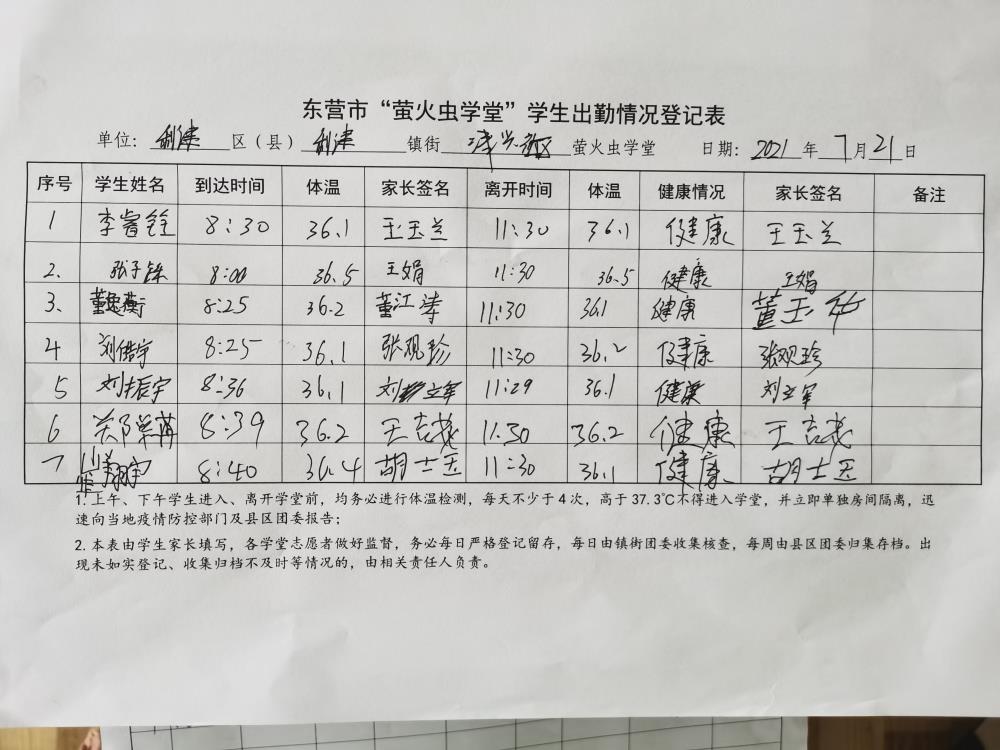 东营市“萤火虫学堂”学生出勤情况登记表
单位: 利津 区(县) 利津 镇街 津兴社区 萤火虫学堂 日期: 2021 年 7 月 21 日
序号 学生姓名 到达时间 体温 家长签名 离开时间 体温 健康情况 家长签名 备注
1 李睿铨 8:30 36.1 王玉兰 11:30 36.1 健康 王玉兰
2. 8:00 36.5 王娟 11:30 36.5 健康 王娟
3、 8:25 36.2 董江涛 11:30 36.1 健康 董玉华
4 刘偌宇 8:25 36.1 张观珍 11:30 36.2 健康 张观珍
5 刘振宇 8:36 36.1 刘立军 11:29 36.1 健康 刘立军
6 8:39 36.2 11.30 36.2 健康
7 8:40 36.4 胡士玉 11:30 36.1 健康 胡士玉
1. 上午、下午学生进入、离开学堂前，均务必进行体温检测，每天不少于4次，高于37.3℃不得进入学堂，并立即单独房间隔离，迅
速向当地疫情防控部门及县区团委报告；
2. 本表由学生家长填写，各学堂志愿者做好监督，务必每日严格登记留存，每日由镇街团委收集核查，每周由县区团委归集存档。出
现未如实登记、收集归档不及时等情况的，由相关责任人负责。